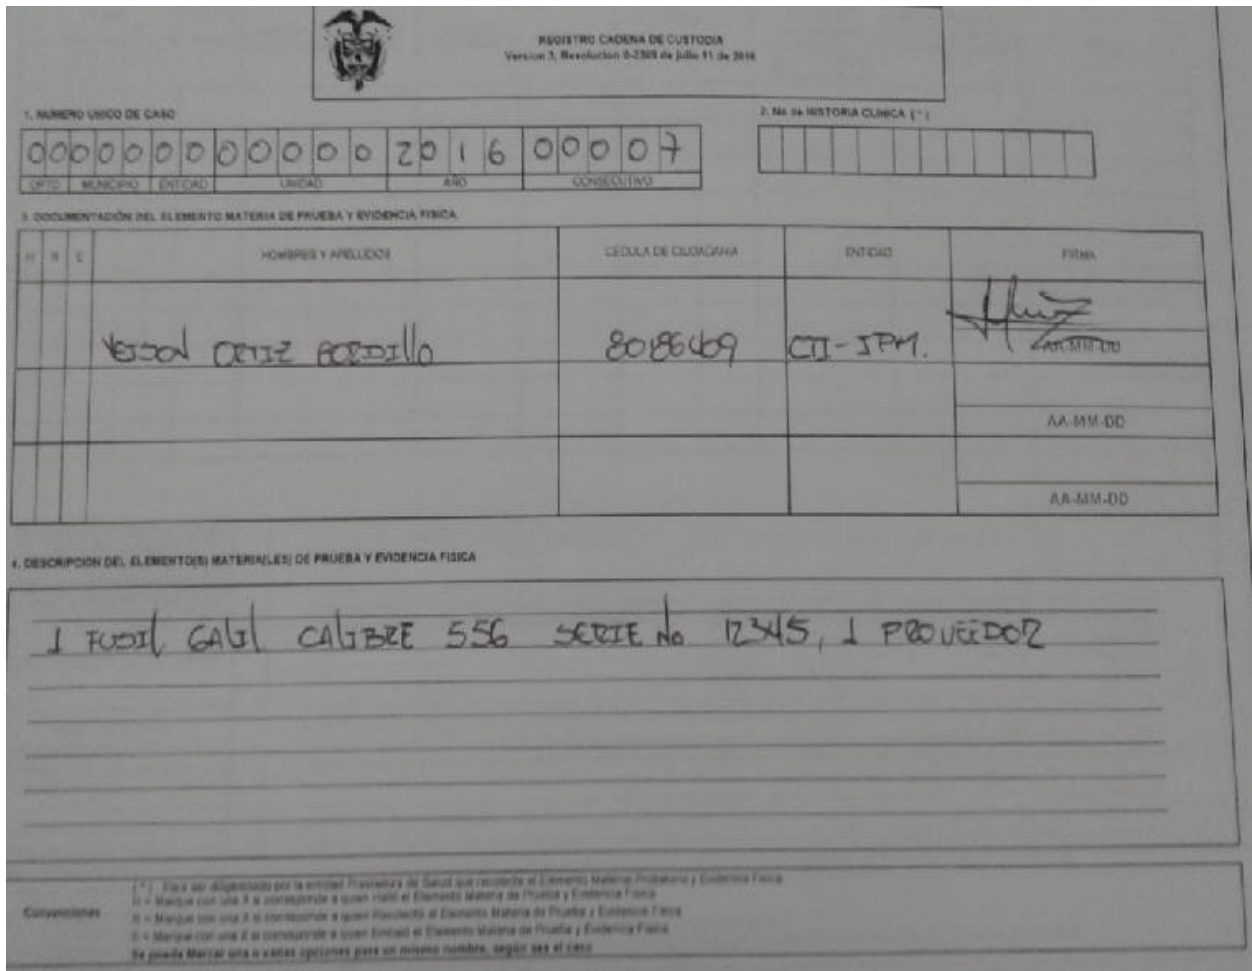 REGISTRO CADENA DE CUSTODIA
Version 3, Resolucion 0-2369 de julio 11 de 2016
1. NUMERO UNICO DE CASO
2. No de HISTORIA CLINICA (*)
000000000000 2016 00007
DPTO MUNICIPIO ENTIDAD UNIDAD AÑO CONSECUTIVO
3. DOCUMENTACIÓN DEL ELEMENTO MATERIA DE PRUEBA Y EVIDENCIA FISICA
H R E NOMBRES Y APELLIDOS CÉDULA DE CIUDADANIA ENTIDAD FIRMA
ORTIZ CTI-JPM.
AA-MM-DD
AA-MM-DD
AA-MM-DD
4. DESCRIPCION DEL ELEMENTO(S) MATERIA(LES) DE PRUEBA Y EVIDENCIA FISICA
1 FUSIL GALIL CALIBRE 556 SERIE No 12345, 1 PROVEEDOR
(*) Para ser diligenciado por la entidad Prestadora de Salud que recolecte el Elemento Material Probatorio y Evidencia Fisica
H = Marque con una X si corresponde a quien Halló el Elemento Materia de Prueba y Evidencia Fisica
Convenciones
R = Marque con una X si corresponde a quien Recolectó el Elemento Materia de Prueba y Evidencia Fisica
E = Marque con una X si corresponde a quien Embaló el Elemento Materia de Prueba y Evidencia Fisica
Se puede Marcar una o varias opciones para un mismo nombre, según sea el caso